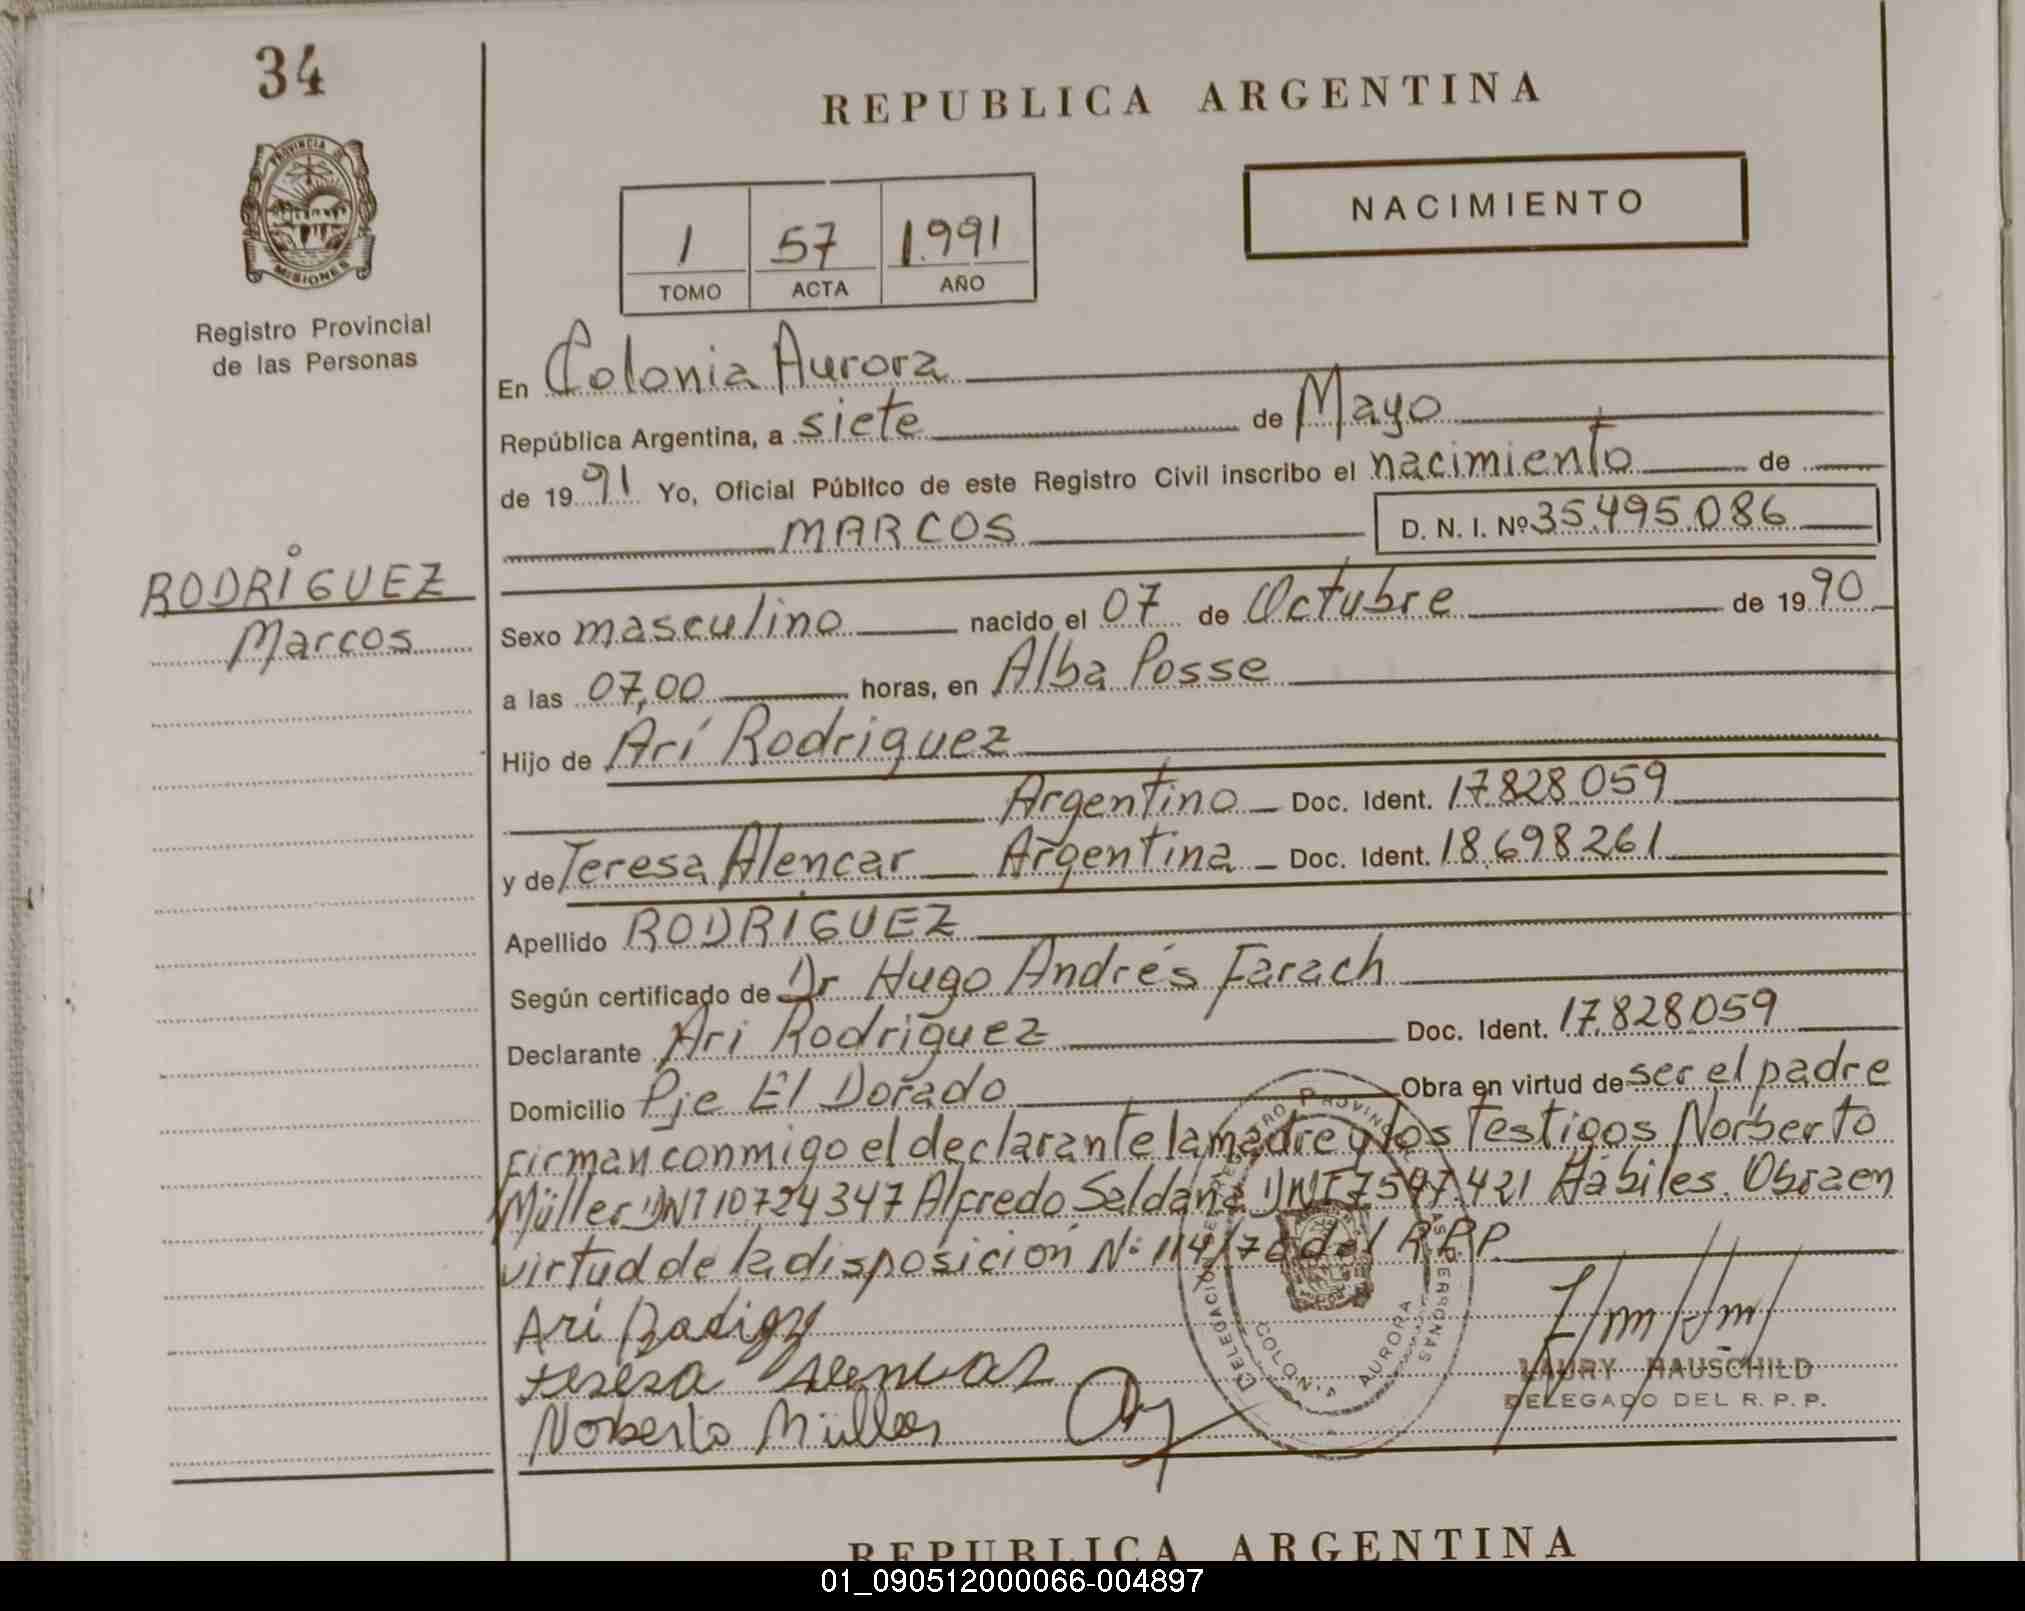 34
REPUBLICA ARGENTINA
PROVINCIA DE
MISIONES
Registro Provincial
de las Personas
NACIMIENTO
1 57 1.991
TOMO ACTA AÑO
En Colonia Aurora
República Argentina, a siete de Mayo
de 19 91 Yo, Oficial Público de este Registro Civil inscribo el nacimiento de
MARCOS D. N. I. Nº 35.495.086
RODRIGUEZ
Marcos
Sexo masculino nacido el 07 de Octubre de 19 90
a las 07,00 horas, en Alba Posse
Hijo de Arí Rodriguez
Argentino Doc. Ident. 17.828.059
y de Teresa Alencar Argentina Doc. Ident. 18.698.261
Apellido RODRIGUEZ
Según certificado de Dr Hugo Andrés Farach
Declarante Ari Rodriguez Doc. Ident. 17.828.059
Domicilio Pje El Dorado Obra en virtud de ser el padre
Firman conmigo el declarante la madre y los Testigos Norberto
Müller DNI 10724347 Alfredo Saldana DNI 7.597.421 Hábiles. Obra en
virtud de la disposición Nº 114/78 del R.P.P.
Arí
teresa Alencar
Norberto Müller
DELEGACION REGISTRO PROVINCIAL DE LAS PERSONAS
COLONIA AURORA
LAURY HAUSCHILD
DELEGADO DEL R. P. P.
REPUBLICA ARGENTINA
01_090512000066-004897